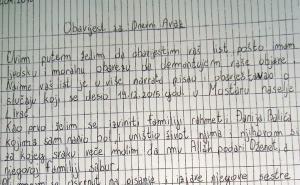 Obavijest za Dnevni Avaz
Ovim putem želim da obavjestim vaš list pošto imam
ljudsku i moralnu obavezu da demantujem vaše objave
Naime vaš list je u više navrata pisao i obavještavao o
slučaju koji se desio 19.12.2015 god. u Mostaru naselje
Kao prvo želim se izviniti familiji rahmetli Danija
kojima sam nanio bol i uništio život njima i njihovom
za kojeg svaku veče molim da mu Allah podari Dženet, a
njegovoj familiji sabur.
osvrnut na pisanje i izjave njegove sestre